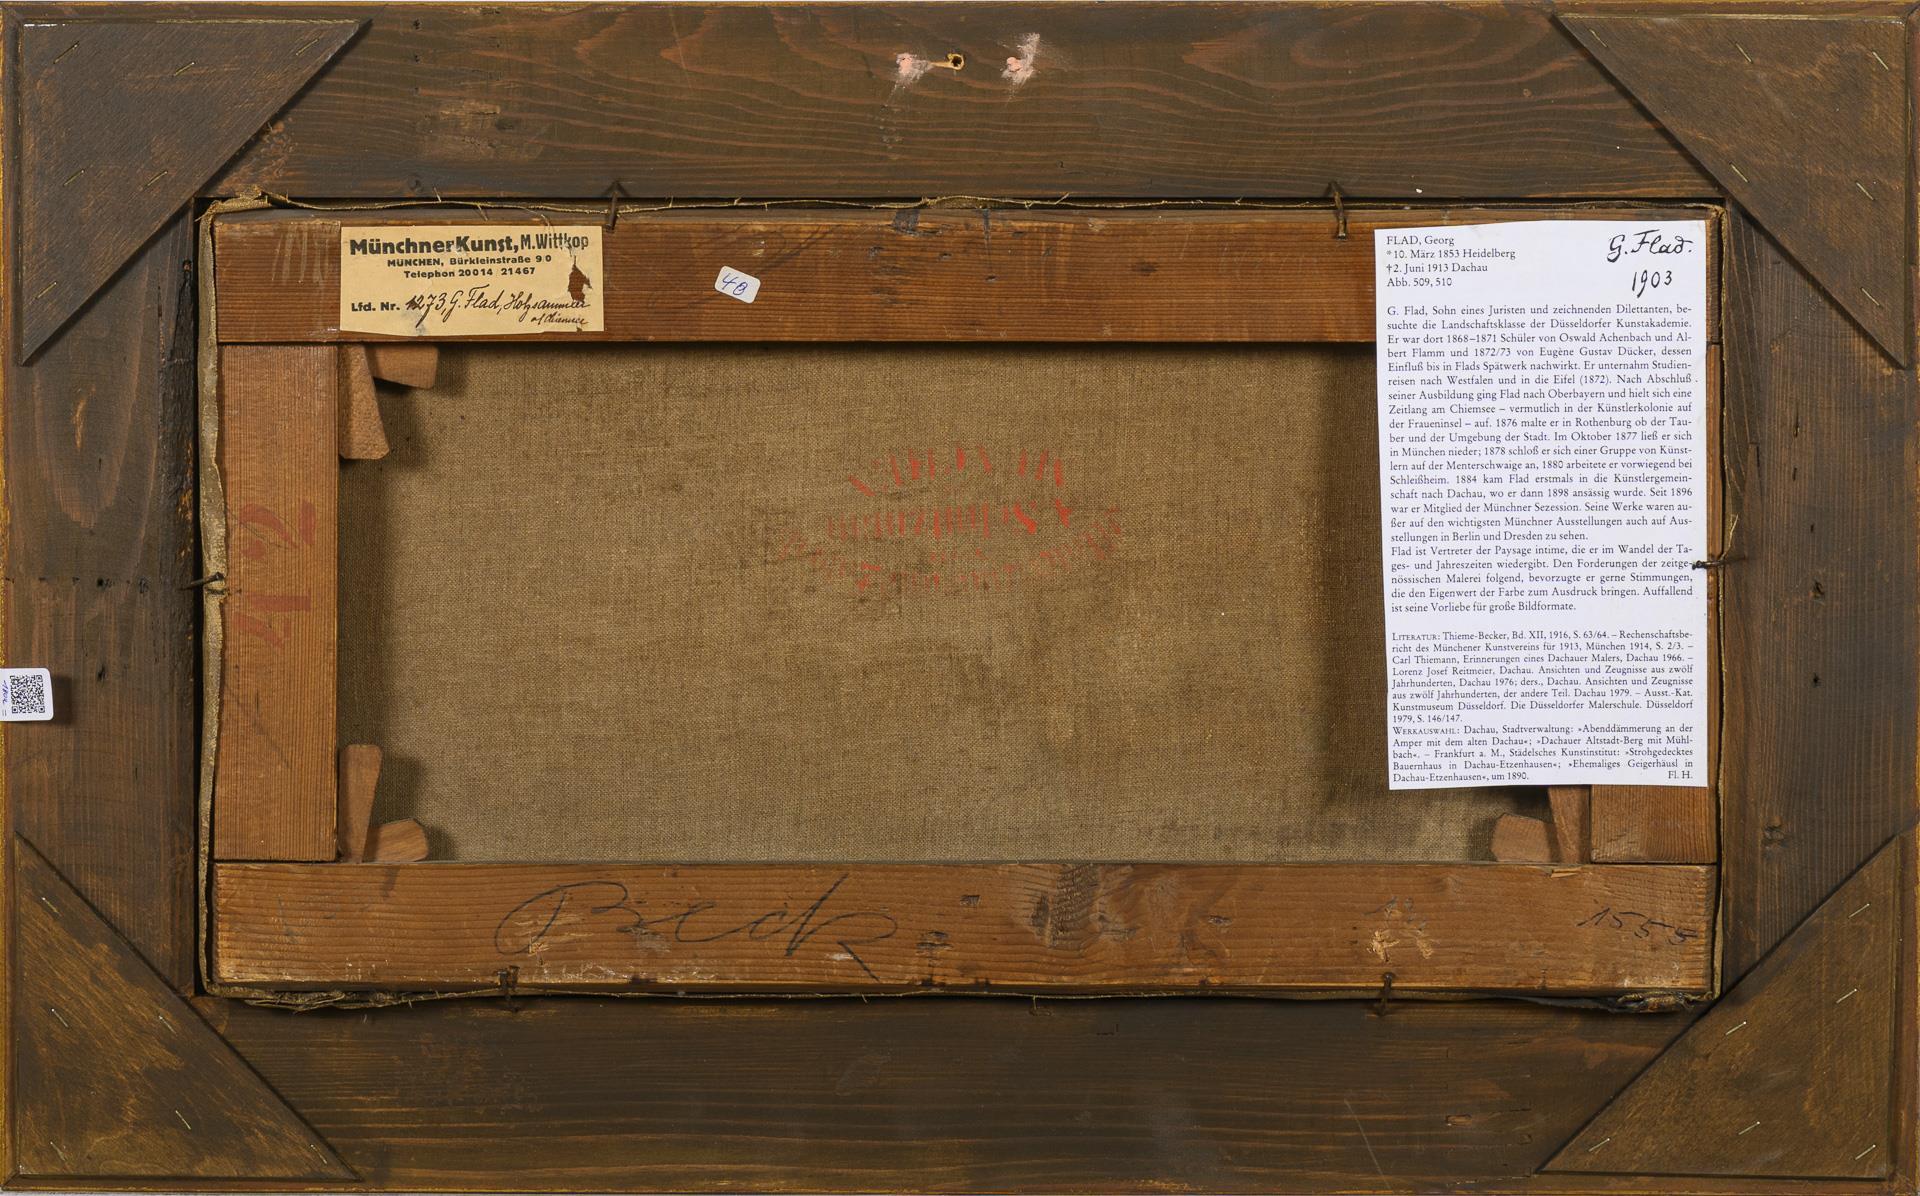 MünchnerKunst, M.Wittkop
MÜNCHEN, Bürkleinstraße 9/0
Telephon 20014 21467
Lfd. Nr. 1273, G. Flad, Holzsammler
48
FLAD, Georg
* 10. März 1853 Heidelberg
† 2. Juni 1913 Dachau
Abb. 509, 510
G. Flad.
1903
G. Flad, Sohn eines Juristen und zeichnenden Dilettanten, be-
suchte die Landschaftsklasse der Düsseldorfer Kunstakademie.
Er war dort 1868–1871 Schüler von Oswald Achenbach und Al-
bert Flamm und 1872/73 von Eugène Gustav Dücker, dessen
Einfluß bis in Flads Spätwerk nachwirkt. Er unternahm Studien-
reisen nach Westfalen und in die Eifel (1872). Nach Abschluß
seiner Ausbildung ging Flad nach Oberbayern und hielt sich eine
Zeitlang am Chiemsee – vermutlich in der Künstlerkolonie auf
der Fraueninsel – auf. 1876 malte er in Rothenburg ob der Tau-
ber und der Umgebung der Stadt. Im Oktober 1877 ließ er sich
in München nieder; 1878 schloß er sich einer Gruppe von Künst-
lern auf der Menterschwaige an, 1880 arbeitete er vorwiegend bei
Schleißheim. 1884 kam Flad erstmals in die Künstlergemein-
schaft nach Dachau, wo er dann 1898 ansässig wurde. Seit 1896
war er Mitglied der Münchner Sezession. Seine Werke waren au-
ßer auf den wichtigsten Münchner Ausstellungen auch auf Aus-
stellungen in Berlin und Dresden zu sehen.
Flad ist Vertreter der Paysage intime, die er im Wandel der Ta-
ges- und Jahreszeiten wiedergibt. Den Forderungen der zeitge-
nössischen Malerei folgend, bevorzugte er gerne Stimmungen,
die den Eigenwert der Farbe zum Ausdruck bringen. Auffallend
ist seine Vorliebe für große Bildformate.
LITERATUR: Thieme-Becker, Bd. XII, 1916, S. 63/64. – Rechenschaftsbe-
richt des Münchener Kunstvereins für 1913, München 1914, S. 2/3. –
Carl Thiemann, Erinnerungen eines Dachauer Malers, Dachau 1966. –
Lorenz Josef Reitmeier, Dachau. Ansichten und Zeugnisse aus zwölf
Jahrhunderten, Dachau 1976; ders., Dachau. Ansichten und Zeugnisse
aus zwölf Jahrhunderten, der andere Teil. Dachau 1979. – Ausst.-Kat.
Kunstmuseum Düsseldorf. Die Düsseldorfer Malerschule. Düsseldorf
1979, S. 146/147.
WERKAUSWAHL: Dachau, Stadtverwaltung: »Abenddämmerung an der
Amper mit dem alten Dachau«; »Dachauer Altstadt-Berg mit Mühl-
bach«. – Frankfurt a. M., Städelsches Kunstinstitut: »Strohgedecktes
Bauernhaus in Dachau-Etzenhausen«; »Ehemaliges Geigerhäusl in
Dachau-Etzenhausen«, um 1890. Fl. H.
Beck
1555